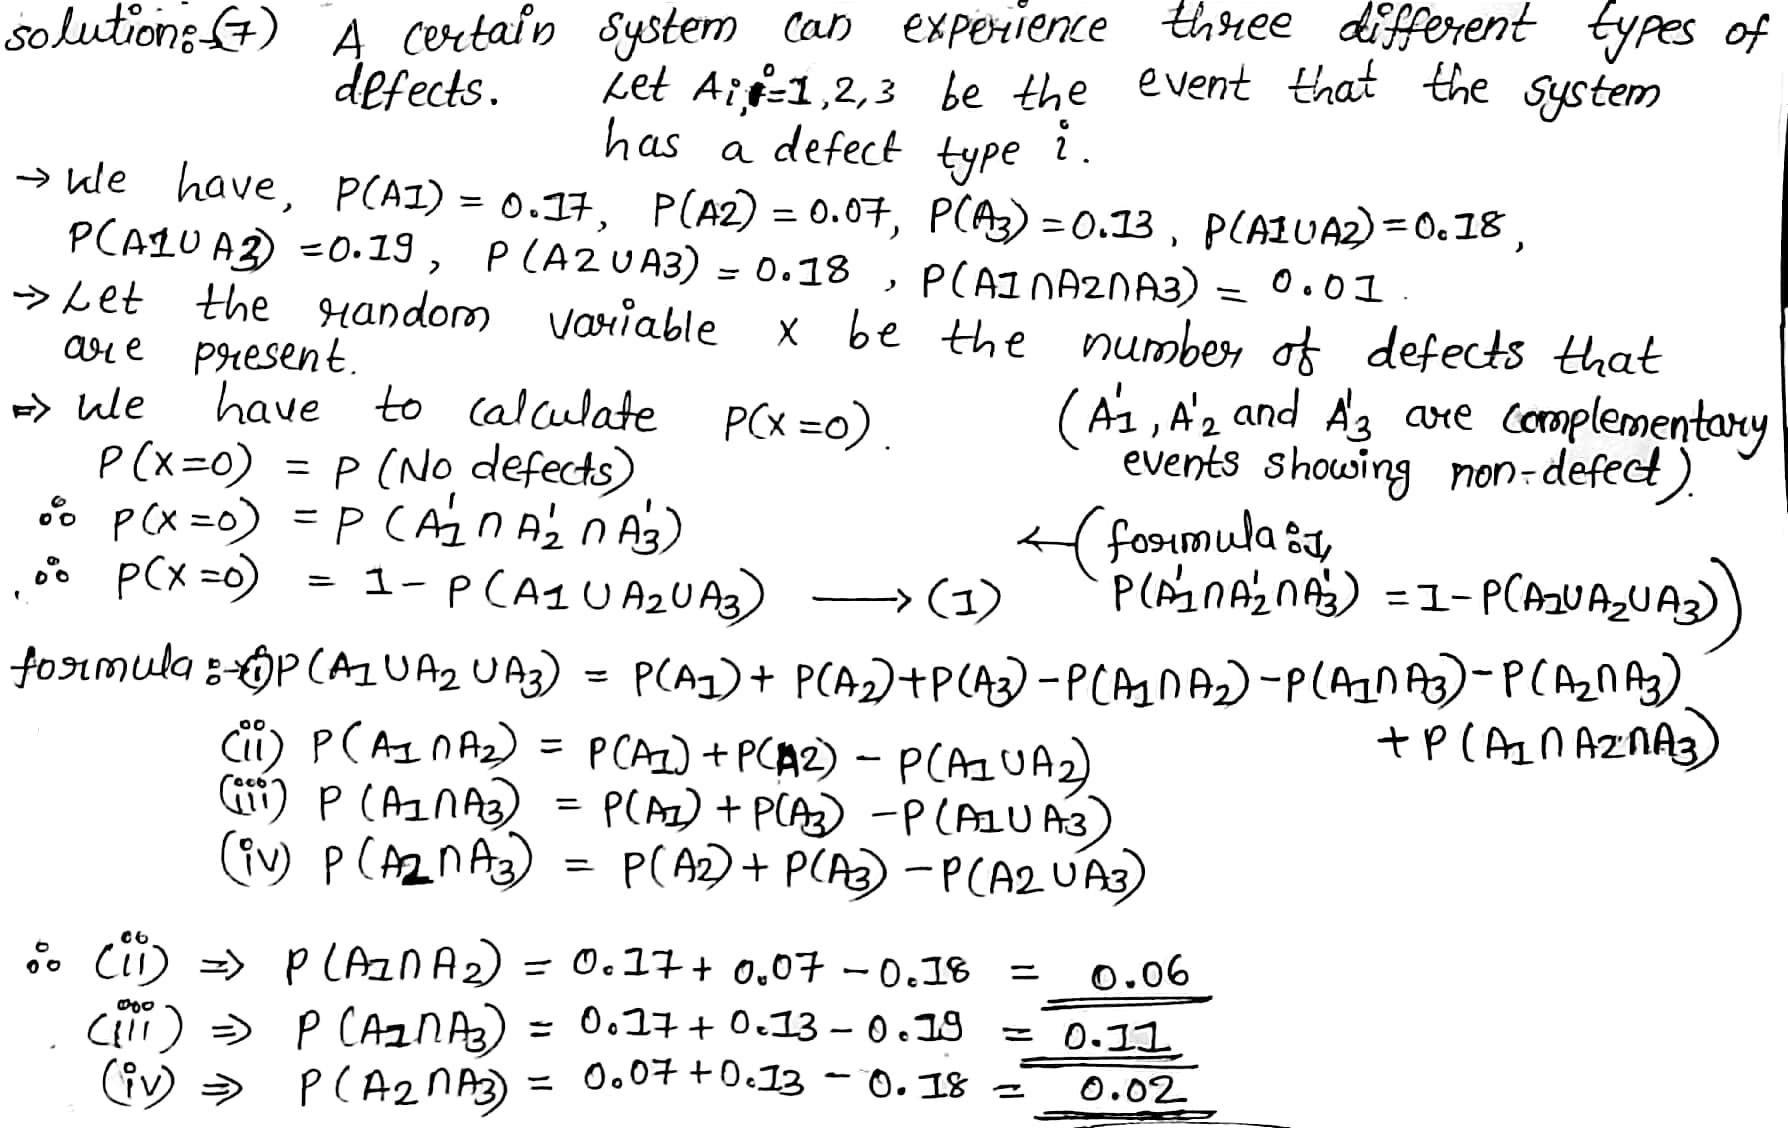 solution:-(7) A certain system can experience three different types of
defects. Let Ai, i=1,2,3 be the event that the system
has a defect type i.
→ We have, P(A1) = 0.17, P(A2) = 0.07, P(A3) = 0.13, P(A1∪A2) = 0.18,
P(A1∪A3) = 0.19, P(A2∪A3) = 0.18, P(A1∩A2∩A3) = 0.01.
→ Let the random variable x be the number of defects that
are present.
⇒ We have to calculate P(x=0). (A'1, A'2 and A'3 are complementary
events showing non-defect).
P(x=0) = P(No defects)
∴ P(x=0) = P(A'1∩A'2∩A'3) ← (formula:-
∴ P(x=0) = 1-P(A1∪A2∪A3) → (1) P(A'1∩A'2∩A'3) = 1-P(A1∪A2∪A3))
formula:-(i) P(A1∪A2∪A3) = P(A1)+P(A2)+P(A3)-P(A1∩A2)-P(A1∩A3)-P(A2∩A3)
+P(A1∩A2∩A3)
(ii) P(A1∩A2) = P(A1)+P(A2)-P(A1∪A2)
(iii) P(A1∩A3) = P(A1)+P(A3)-P(A1∪A3)
(iv) P(A2∩A3) = P(A2)+P(A3)-P(A2∪A3)
∴ (ii) ⇒ P(A1∩A2) = 0.17+0.07-0.18 = 0.06
(iii) ⇒ P(A1∩A3) = 0.17+0.13-0.19 = 0.11
(iv) ⇒ P(A2∩A3) = 0.07+0.13-0.18 = 0.02